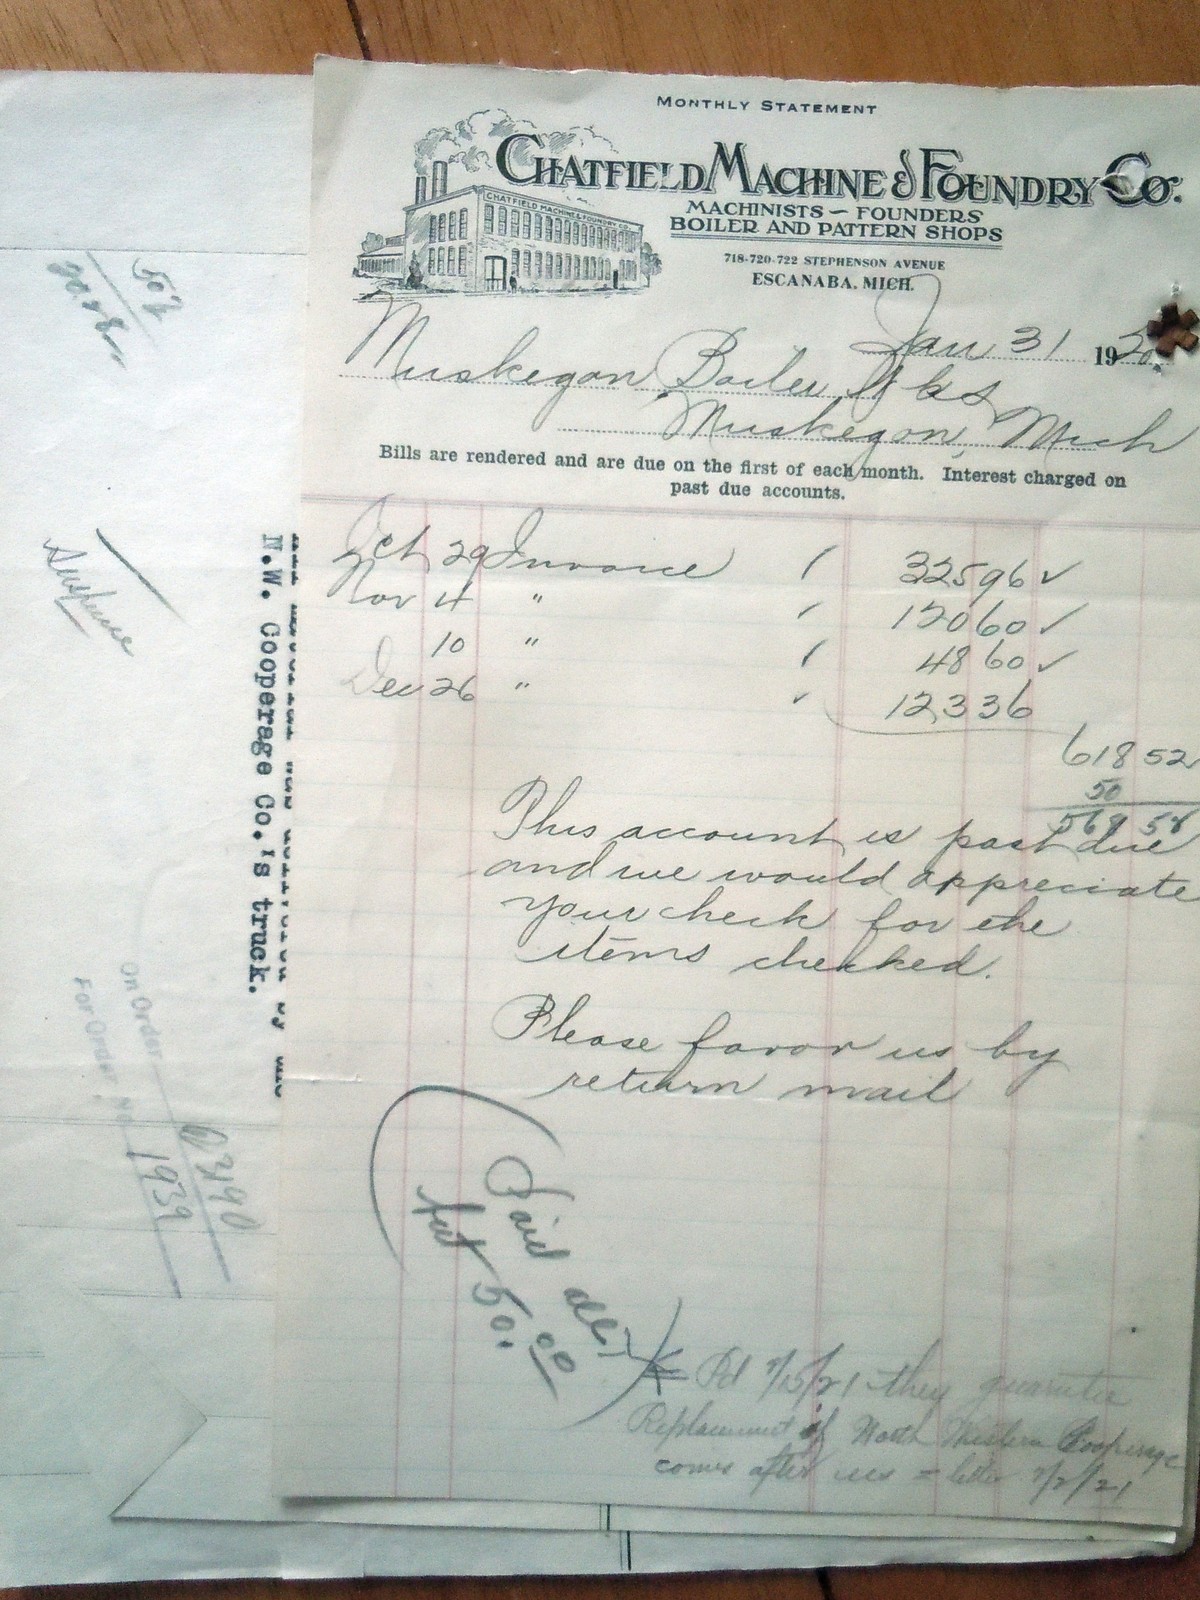 MONTHLY STATEMENT
CHATFIELD MACHINE & FOUNDRY CO.
CHATFIELD MACHINE & FOUNDRY CO.
MACHINISTS — FOUNDERS
BOILER AND PATTERN SHOPS
718-720-722 STEPHENSON AVENUE
ESCANABA, MICH.
Jan 31 1920
Muskegon Boiler Wks
Muskegon, Mich
Bills are rendered and are due on the first of each month. Interest charged on
past due accounts.
Oct 29 Invoice 325 96 ✓
Nov 4 " 120 60 ✓
10 " 48 60 ✓
Dec 26 " 123 36
618 52
50
This account is past due
and we would appreciate
your check for the
items checked.
Please favor us by
return mail
Paid all
but 50.00
Pd they guarantee
Replacement of North Western Cooperage
comes after us = letter
N.W. Cooperage Co.'s truck.
Suspense
On Order
For Order No. 1939